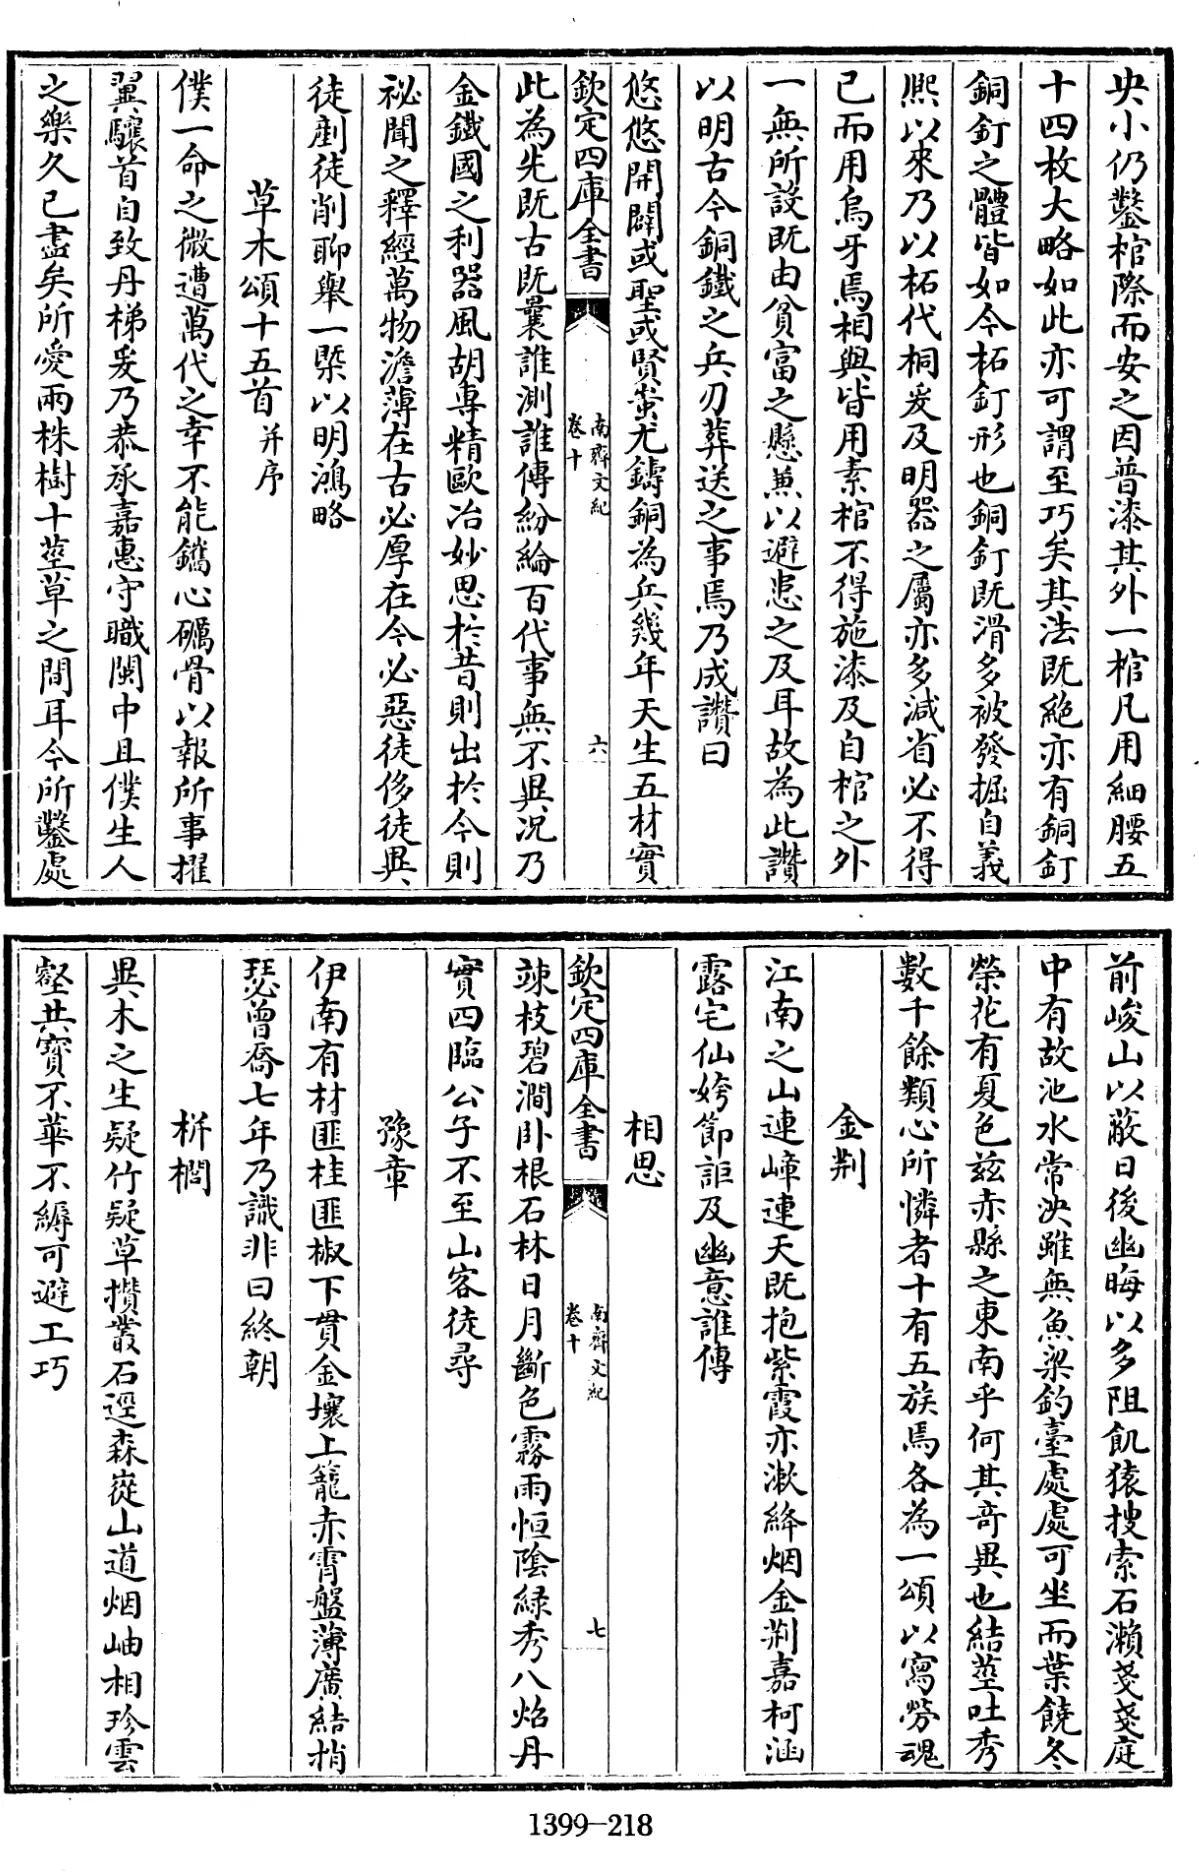 央小仍鑿棺際而安之因普漆其外一棺凡用細腰五
十四枚大略如此亦可謂至巧矣其法既絶亦有銅釘
銅釘之體皆如今柘釘形也銅釘既滑多被發掘自義
熈以來乃以柘代桐爰及明器之屬亦多減省必不得
已而用烏牙焉相與皆用素棺不得施漆及自棺之外
一無所設既由貧富之懸兼以避患之及耳故為此讚
以明古今銅鐵之兵刃葬送之事焉乃成讚曰
悠悠開闢或聖或賢蚩尤鑄銅為兵幾年天生五材實
欽定四庫全書
南齊文紀
卷十
六
此為先既古既曩誰測誰傳紛綸百代事無不異况乃
金鐵國之利器風胡專精歐冶妙思於昔則出於今則
祕聞之釋經萬物澹薄在古必厚在今必惡徒侈徒異
徒剬徒削聊舉一槩以明鴻略
草木頌十五首并序
僕一命之微遭萬代之幸不能鐫心礪骨以報所事擢
翼驤首自致丹梯爰乃恭承嘉惠守職閩中且僕生人
之樂久已盡矣所愛兩株樹十莖草之間耳今所鑿處
前峻山以蔽日後幽晦以多阻飢猿搜索石瀨戔戔庭
中有故池水常泱雖無魚梁釣臺處處可坐而葉饒冬
榮花有夏色兹赤縣之東南乎何其奇異也結莖吐秀
數千餘類心所憐者十有五族焉各為一頌以寫勞魂
金荆
江南之山連嶂連天既抱紫霞亦漱絳烟金荆嘉柯涵
露宅仙姱節詎及幽意誰傳
相思
欽定四庫全書
南齊文紀
卷十
七
竦枝碧澗卧根石林日月斷色霧雨恒陰緑秀八炤丹
實四臨公子不至山客徒尋
豫章
伊南有材匪桂匪椒下貫金壤上籠赤霄盤薄廣結梢
瑟曾喬七年乃識非曰終朝
栟櫚
異木之生疑竹疑草攢叢石逕森㠝山道烟岫相珍雲
壑共寶不華不縟可避工巧
1399-218